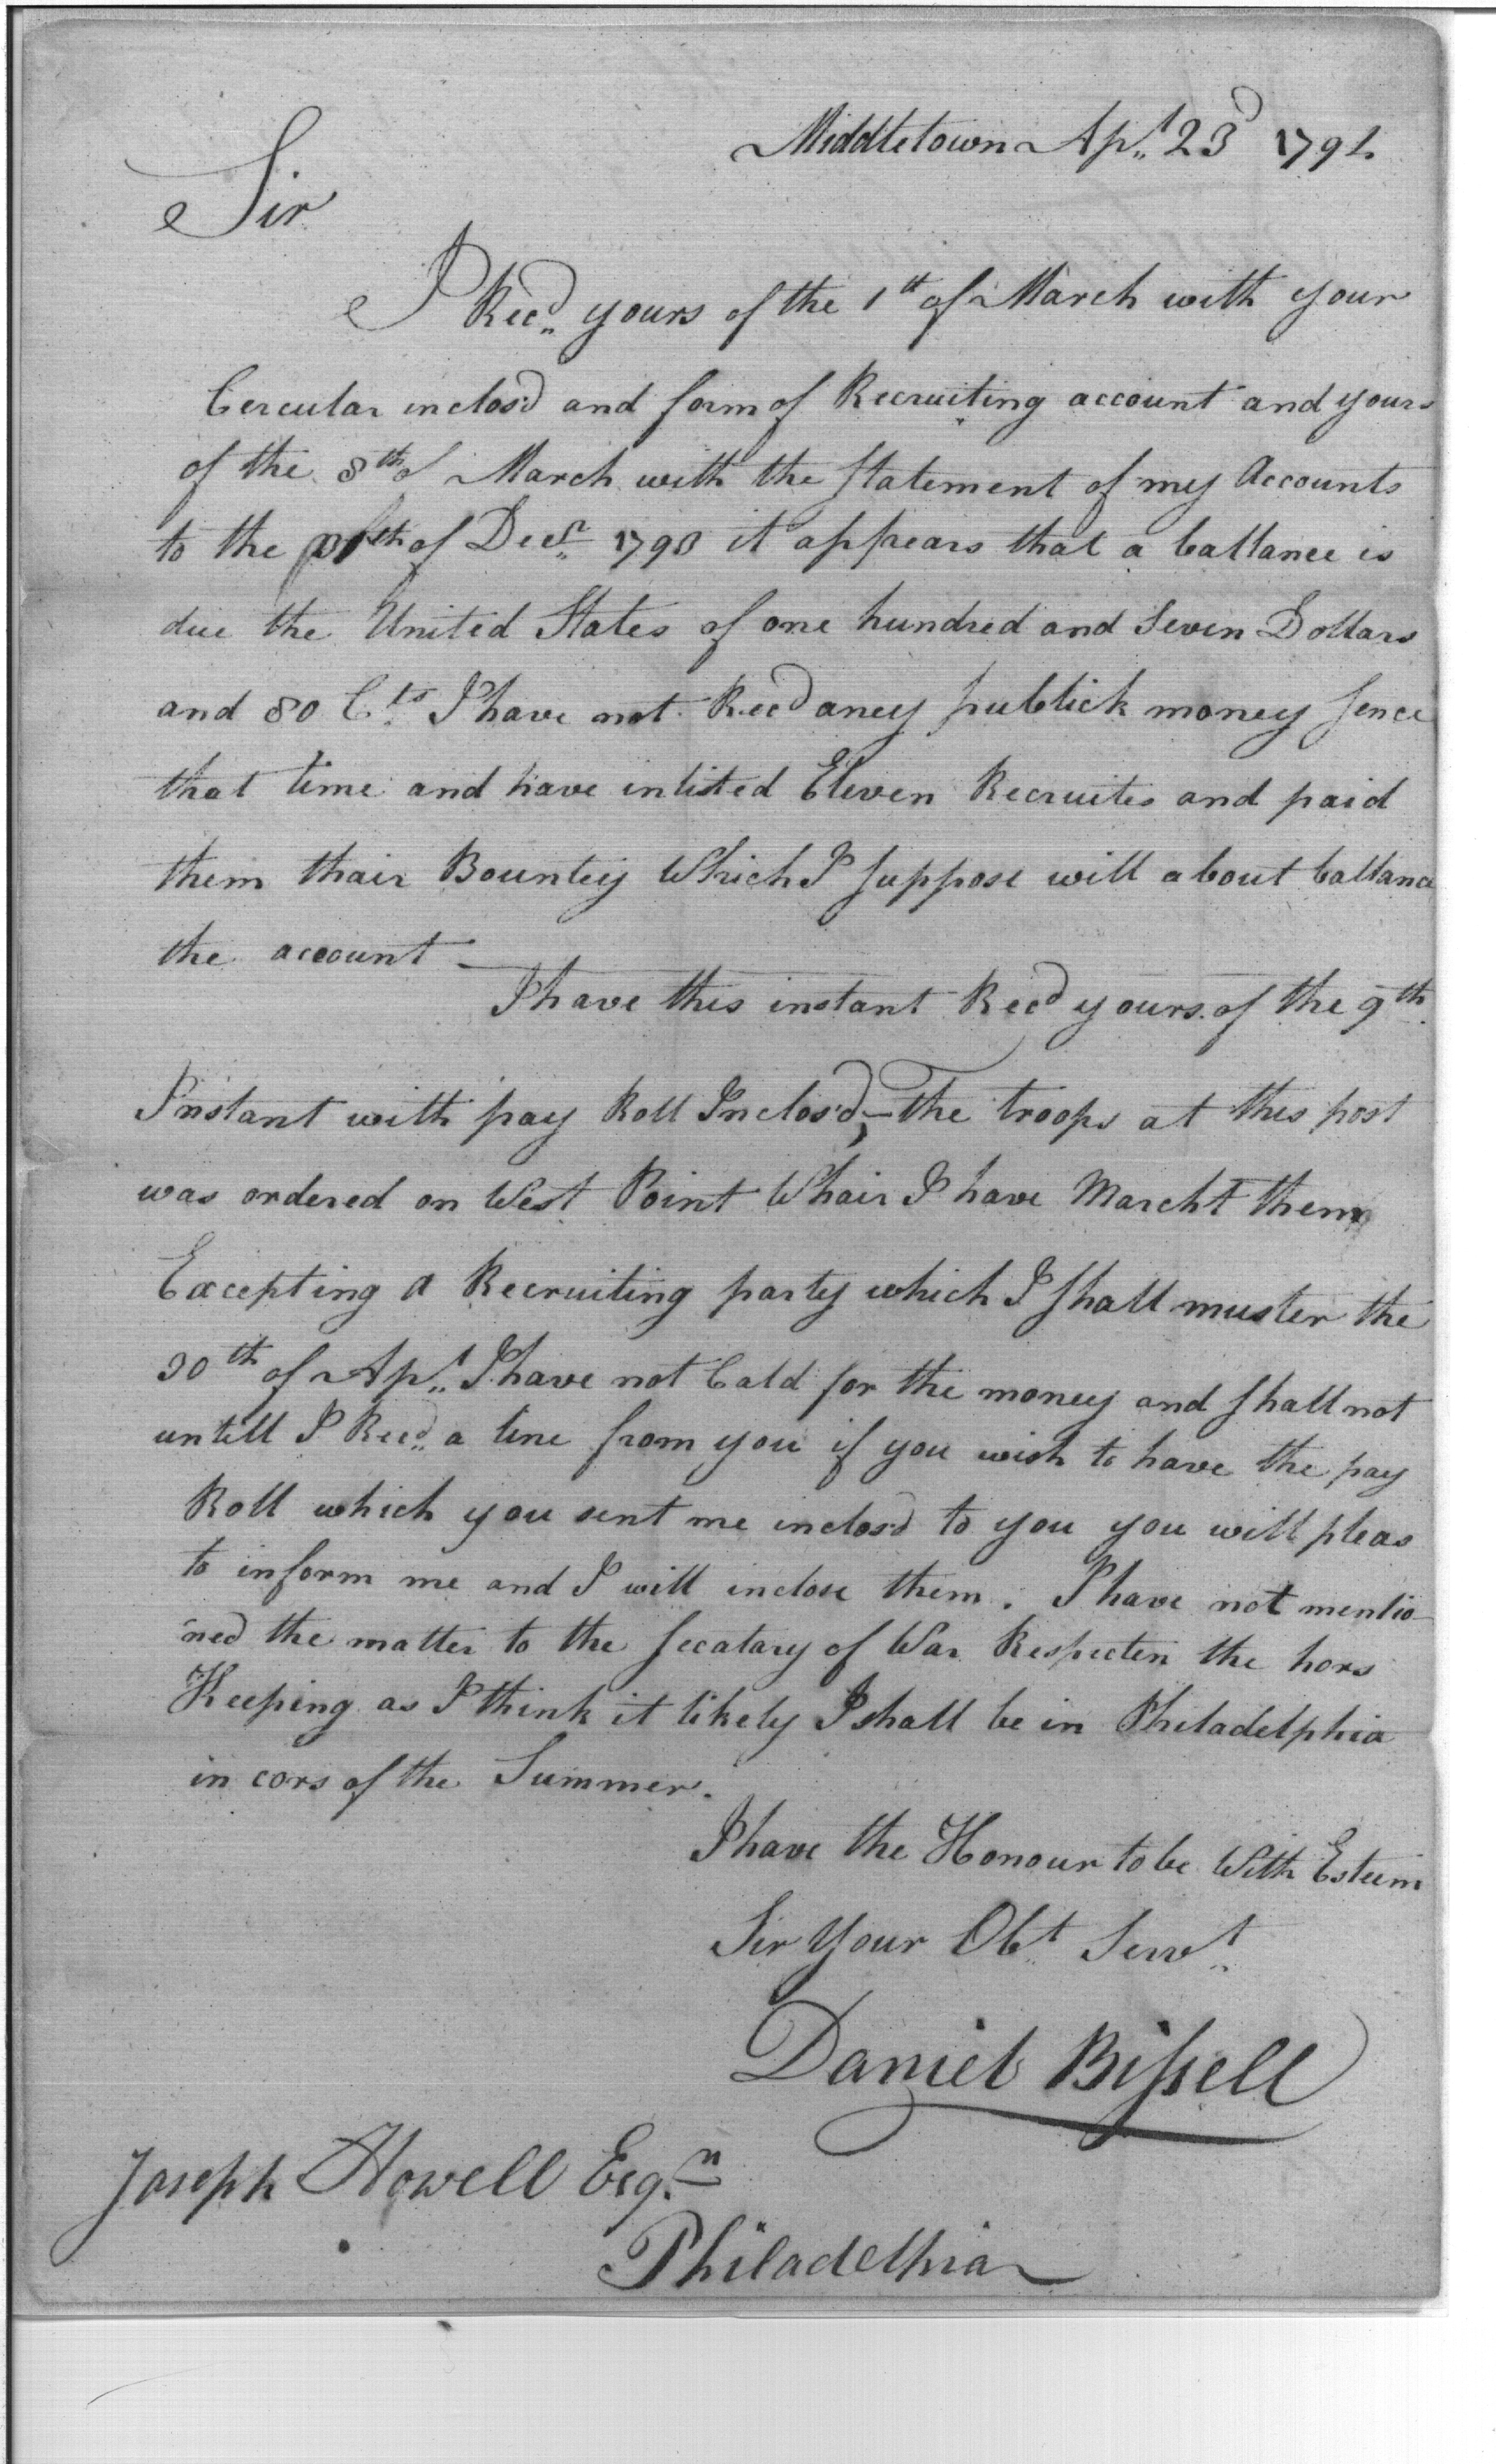 Middletown Apl. 23d 1794
Sir
I Recd. yours of the 1th of March with your
Cercular inclos'd and form of Recruiting account and yours
of the 8th of March with the Statement of my Accounts
to the 31th of Decr. 1793 it appears that a ballance is
due the United States of one hundred and Seven Dollars
and 80 Cts. I have not Recd aney publick money Sence
that time and have inlisted Eleven Recruites and paid
them thair Bountey Which I Suppose will about ballance
the account —
I have this instant Recd yours of the 9th
Instant with pay Roll Inclos'd, — The troops at this post
was ordered on West Point Whair I have Marcht them
Excepting a Recruiting party which I Shall muster the
30th of Apl. I have not Cald for the money and Shall not
untill I Recd. a line from you if you wish to have the pay
Roll which you sent me inclos'd to you you will pleas
to inform me and I will inclose them. I have not mentio-
ned the matter to the Secatary of War Respecten the hors
Keeping as I think it likely I shall be in Philadelphia
in cors of the Summer.
I have the Honour to be With Esteem
Sir Your Obt. Servt.
Daniel Bissell
Joseph Howell Esqr.
Philadelhia